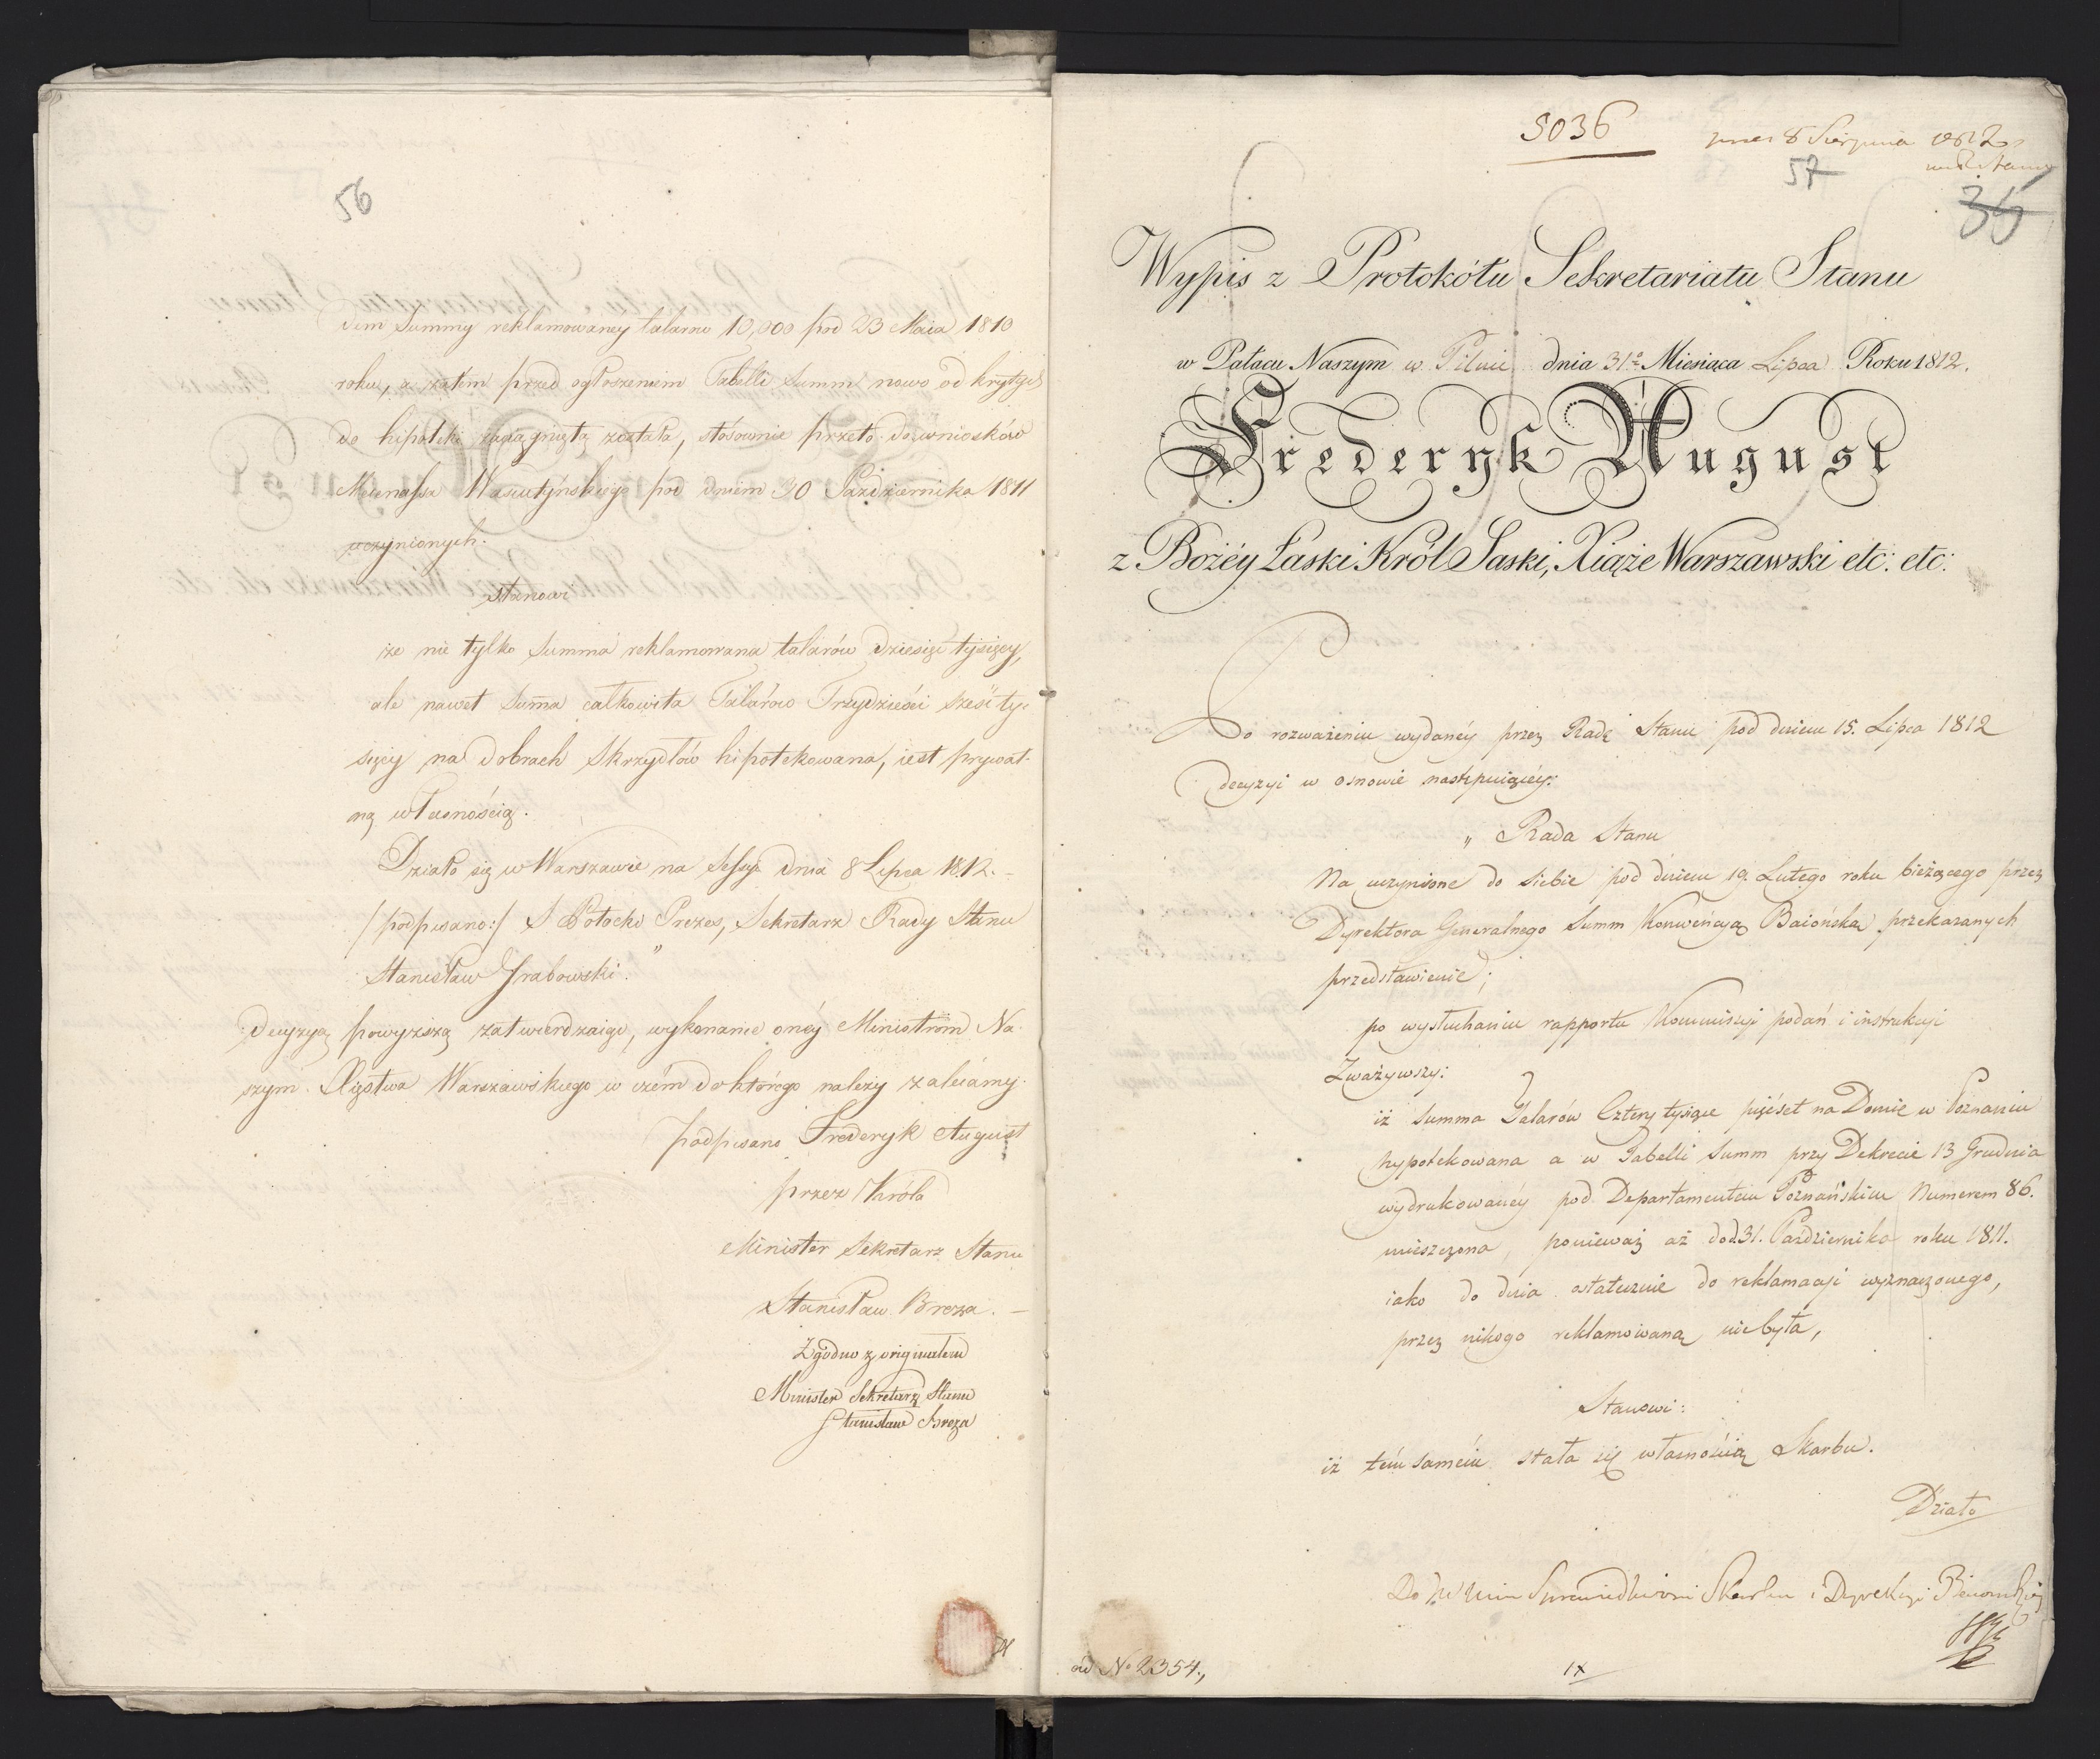 56
dem Summy reklamowaney talarów 10,000 pod 23 Maia 1810
roku, a zatém przed ogłoszeniem Tabelli Summ nowo odkrytych
do hipoteki zaciągniętą została, stósownie przeto do wniosków
Mecenassa Wascutyńskiego pod dniem 30 Października 1811
uczynionych.
Stanowi
że nie tylko Summa reklamowana talarów dziesięć tysięcy,
ale nawet Suma całkowita Talarów Trzydzieści sześć ty-
sięcy na dobrach Skrzydłów hipotekowana, iest prywat-
ną własnością.
Działo się w Warszawie na Sessyi dnia 8 Lipca 1812.
/podpisano:/ S Potocki Prezes, Sekretarz Rady Stanu
Stanisław Grabowski."
Decyzyą powyższą zatwierdzaiąc, wykonanie onéy Ministróm Na-
szym Xięstwa Warszawskiego w czém do którego należy zalecámy.
podpisano Frederyk August
przez Króla
Minister Sekretarz Stanu
Stanisław Breza. —
Zgodno z originałem
Minister Sekretarz Stanu
Stanisław Breza
5036
8 Sierpnia 1812
57
36
Wypis z Protokółu Sekretariatu Stanu
w Pałacu Naszym w Pilnic dnia 31º Miesiąca Lipca Roku 1812.
Frederyk August
z Bożéy Łaski Król Saski, Xiąże Warszawski etc: etc:
Do rozważeniu wydanéy przez Radę Stanu pod dniem 15. Lipca 1812
decyzyi w osnowie następuiącéy:
„ Rada Stanu
Na uczynione do siebie pod dniem 19. Lutego roku bieżącego przez
Dyrektora Generalnego Summ Konwencyą Baiońską przekazanych
przedstawienie;
po wysłuchaniu rapportu Kommissyi podań i instrukcyi
Zważywszy:
iż Summa Talarów Cztery tysiące pięćset na Domie w Poznaniu
hypotekowana a w Tabelli Summ przy Dekrecie 13 Grudnia
wydrukowanéy pod Departamentem Poznańskim Numerem 86.
mieszczona, ponieważ aż do d 31. Października roku 1811.
iako do dnia ostatecznie do reklamacyi wyznaczonego,
przez nikogo reklamowaną nie była,
Stanowi:
iż tém samém stała się własnością Skarbu.
Działo
Do Min Sprawiedliwości Skarbu i Dyrekcyi
ad No 2354.,
IX